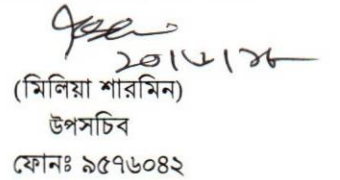 (মিলিয়া শারমিন)
উপসচিব
ফোনঃ ৯৫৭৬০৪২